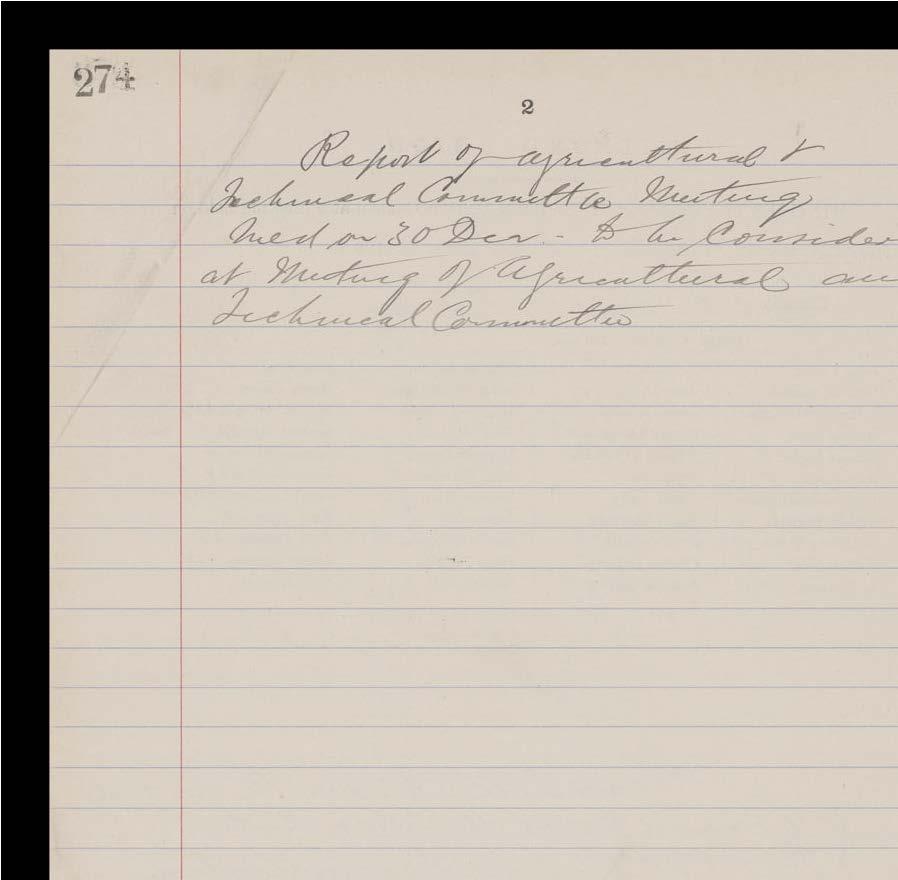 274
2
Report of Agricultural &
Technical Committee Meeting
held on 30 Dec. - to be Consider
at Meeting of Agricultural an
Technical Committee